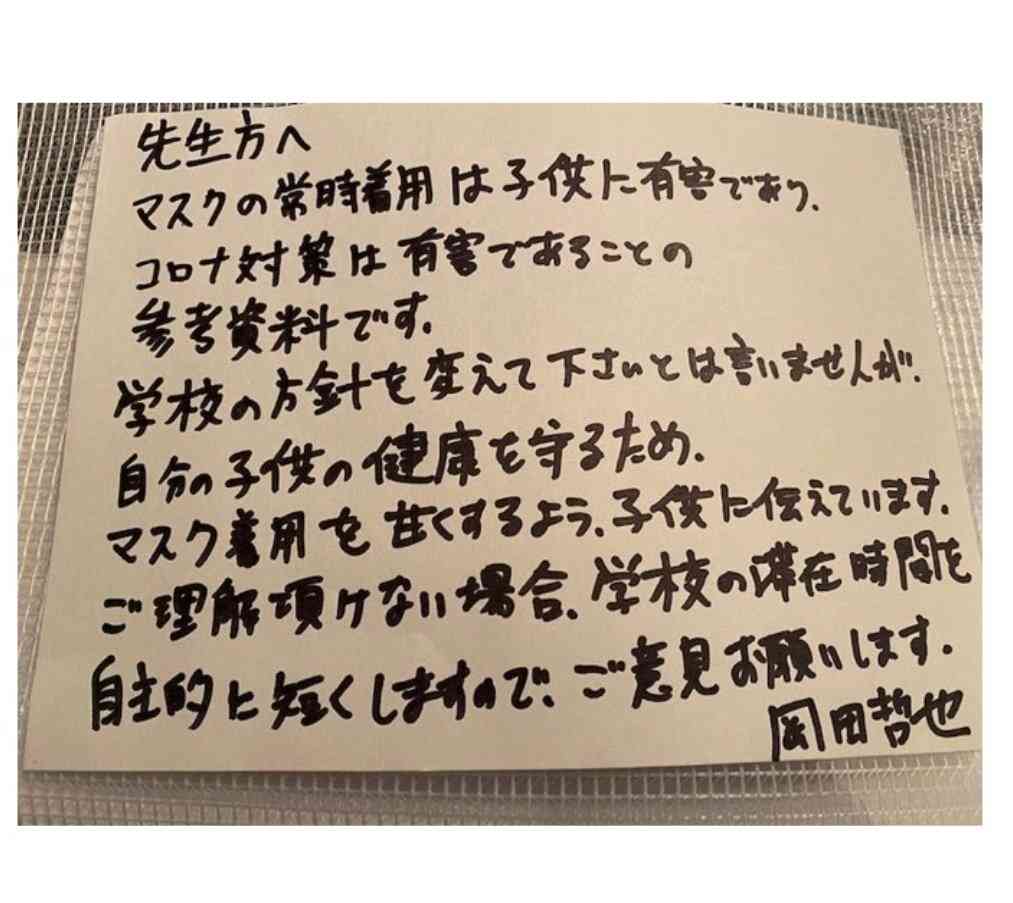 先生方へ
マスクの常時着用は子供に有害であり、
コロナ対策は有害であることの
参考資料です。
学校の方針を変えて下さいとは言いませんが、
自分の子供の健康を守るため、
マスク着用を甘くするよう、子供に伝えています。
ご理解頂けない場合、学校の滞在時間を
自主的に短くしますので、ご意見お願いします。
岡田哲也